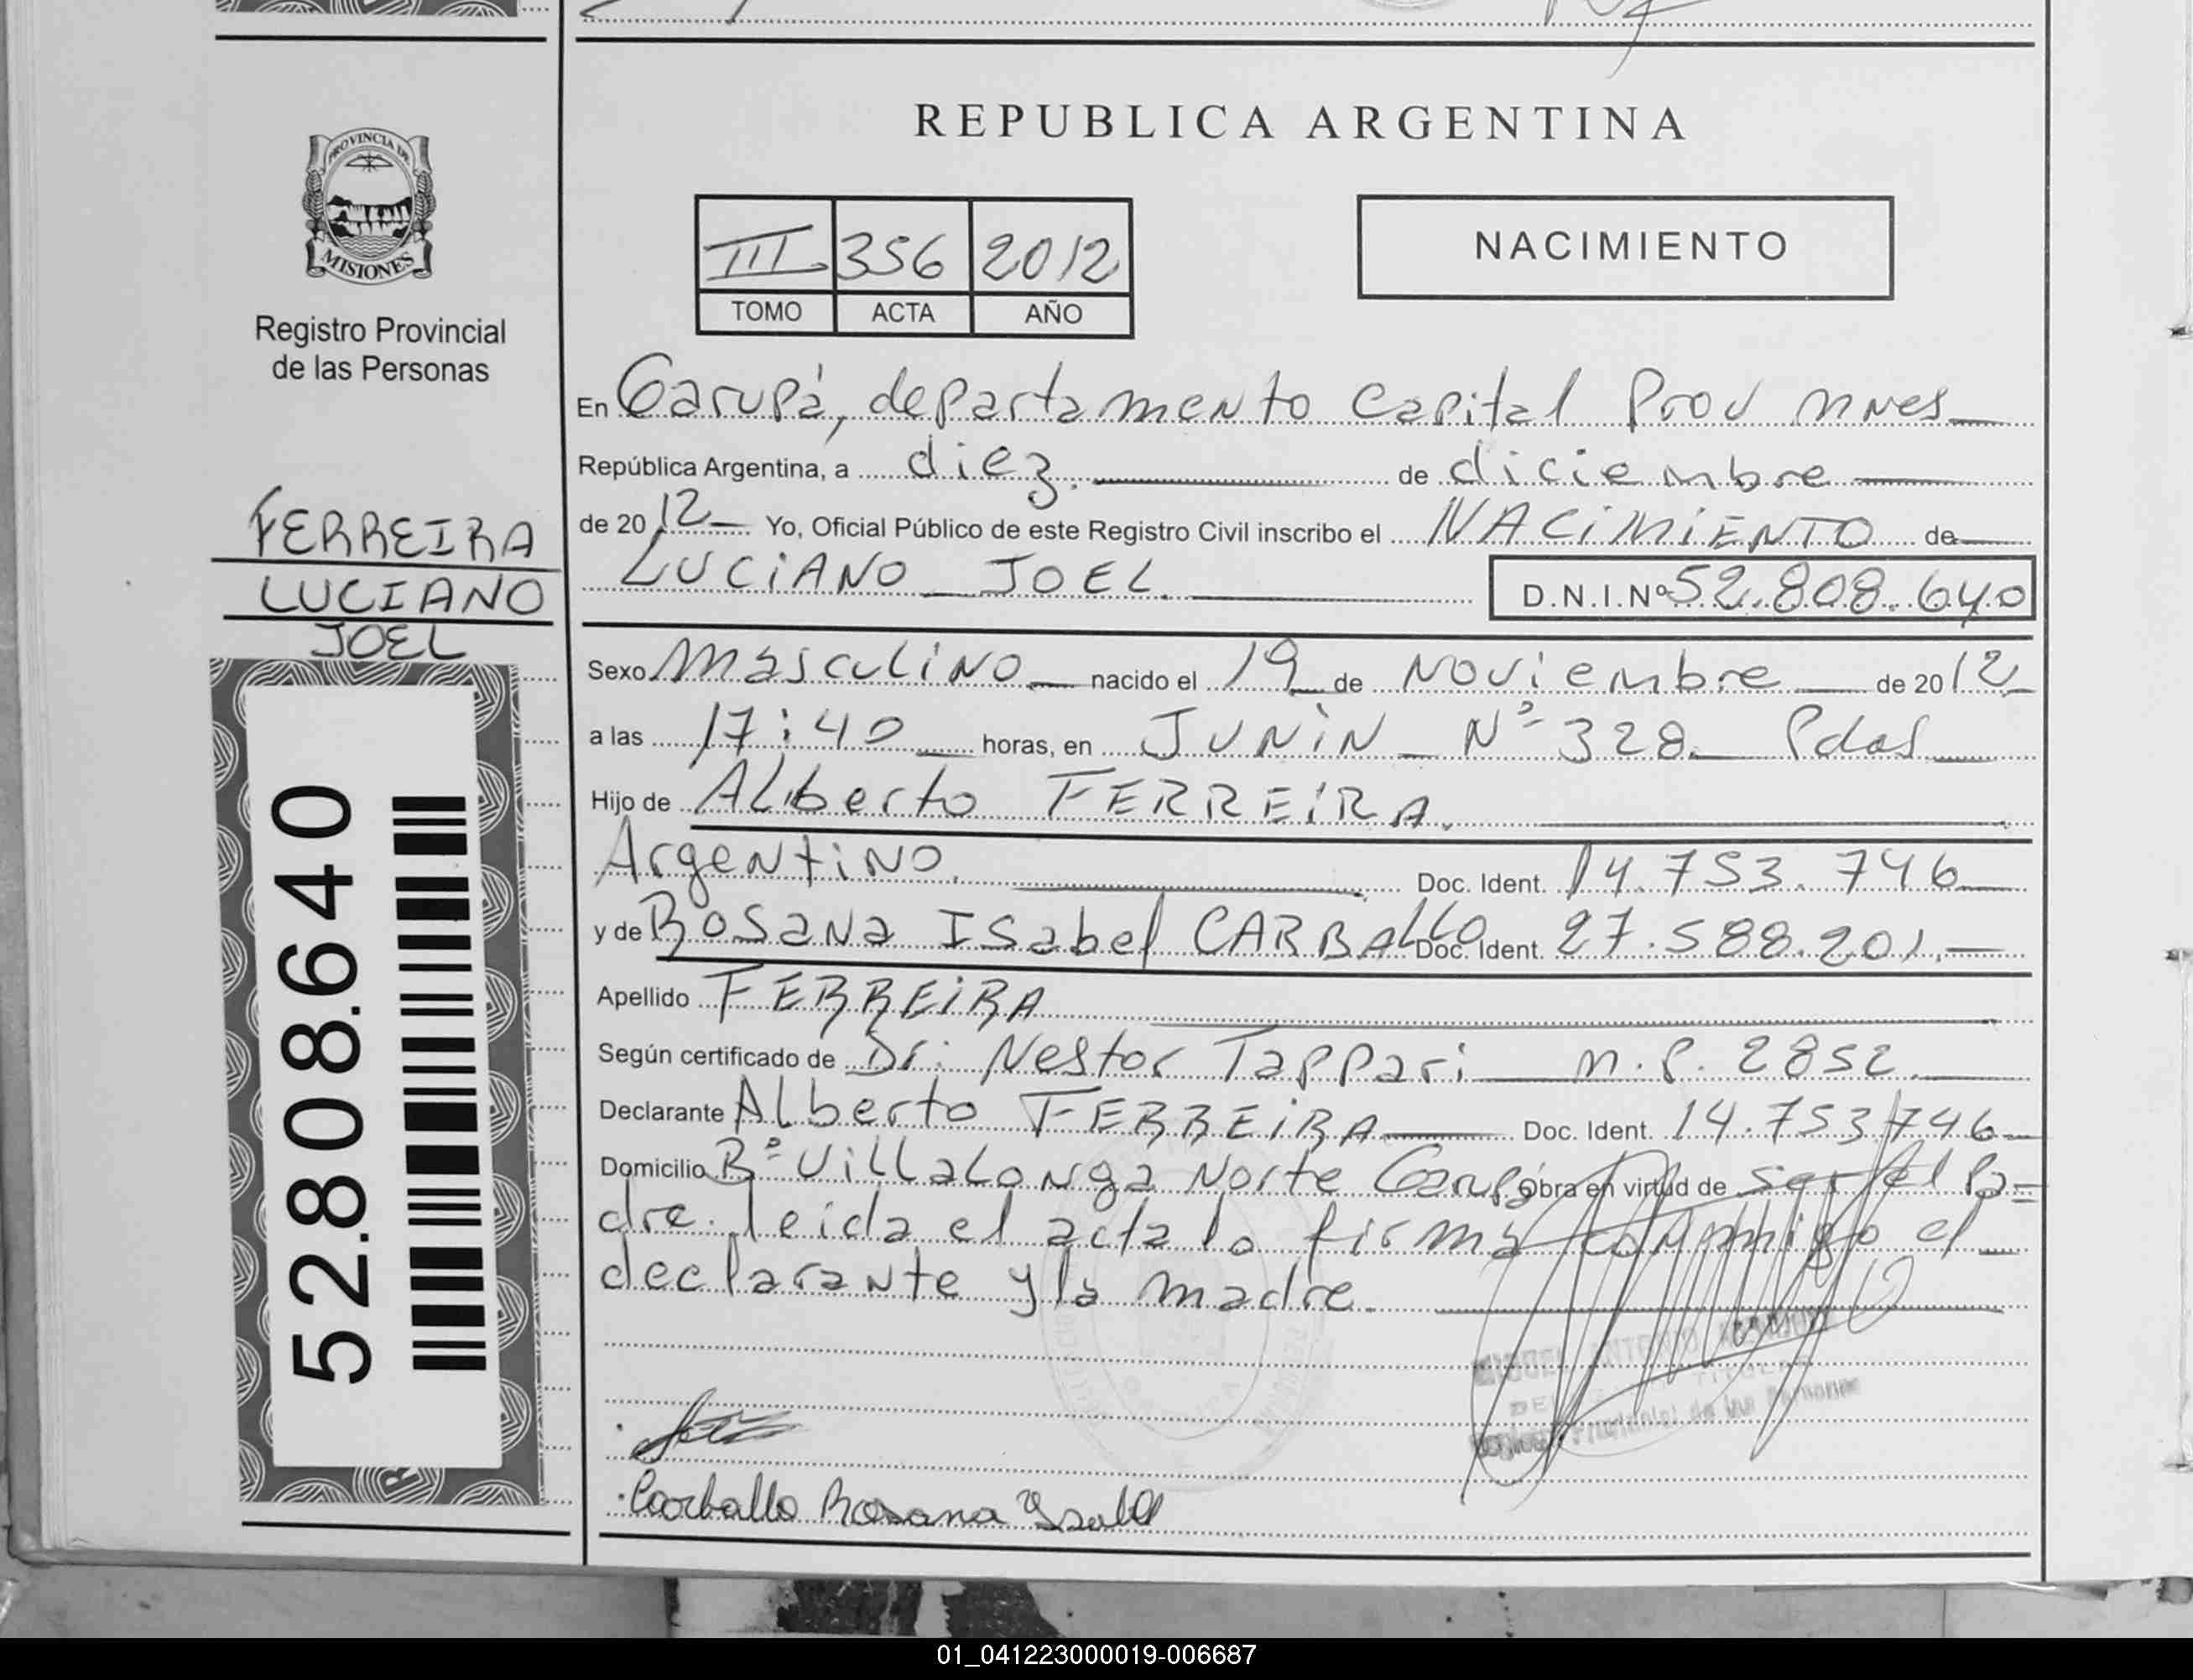 REPUBLICA ARGENTINA
PROVINCIA DE
MISIONES
Registro Provincial
de las Personas
III 356 2012
TOMO ACTA AÑO
NACIMIENTO
En Garupá, departamento Capital Prov mnes
República Argentina, a diez. de diciembre
de 2012 Yo, Oficial Público de este Registro Civil inscribo el NACIMIENTO de
LUCIANO JOEL. D.N.I.Nº 52.808.640
FERREIRA
LUCIANO
JOEL
52.808.640
Sexo masculino nacido el 19 de Noviembre de 2012
a las 17:40 horas, en JUNIN Nº 328. Pdas
Hijo de Alberto FERREIRA.
Argentino. Doc. Ident. 14.753.746
y de Rosana Isabel CARBALLO Doc. Ident. 27.588.201.
Apellido FERREIRA
Según certificado de Dr. Nestor Tappari m.p. 2852.
Declarante Alberto FERREIRA Doc. Ident. 14.753.746
Domicilio Bº Villalonga Norte Garupá Obra en virtud de ser el pa-
dre. leida el acta la firma conmigo el
declarante y la madre.
Provincial de las Personas
Carballo Rosana Isabel
01_041223000019-006687